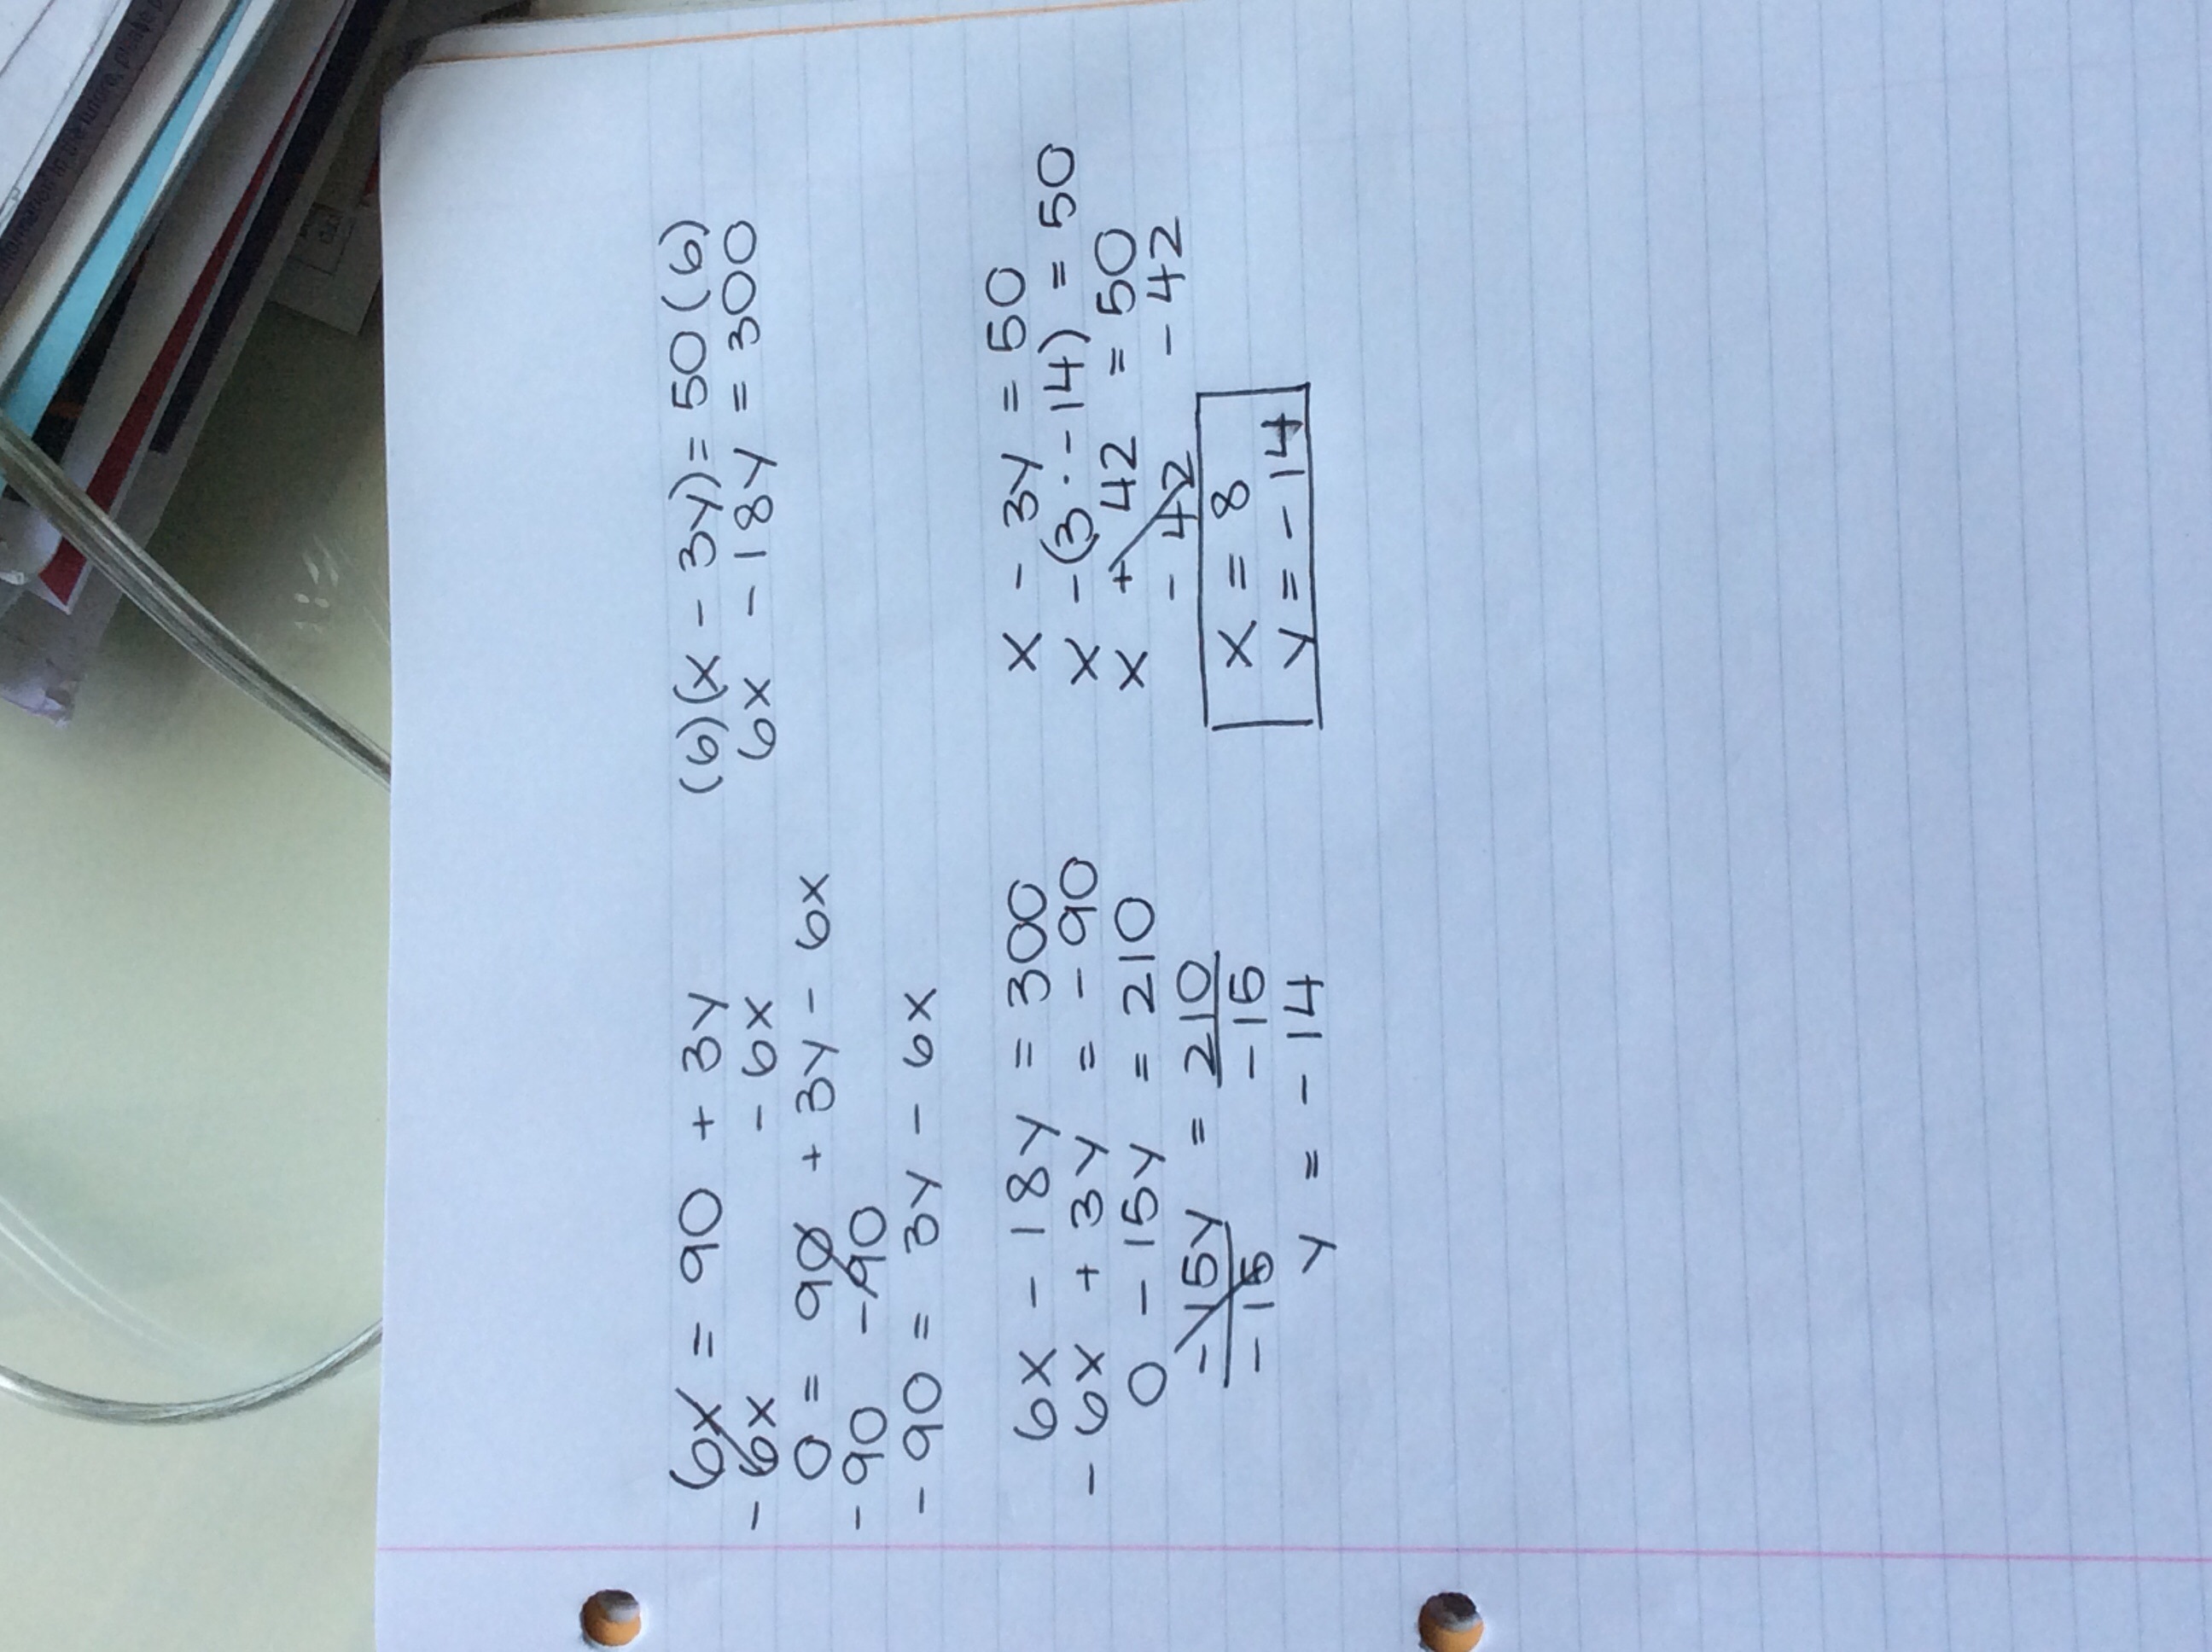 6x = 90 + 3y
- 6x - 6x
0 = 90 + 3y - 6x
- 90 - 90
- 90 = 3y - 6x
(6)(x - 3y) = 50 (6)
6x - 18y = 300
6x - 18y = 300
- 6x + 3y = - 90
0 - 15y = 210
- 15y = 210
- 15 - 15
y = - 14
x - 3y = 50
x - (3 · - 14) = 50
x + 42 = 50
- 42 - 42
x = 8
y = - 14